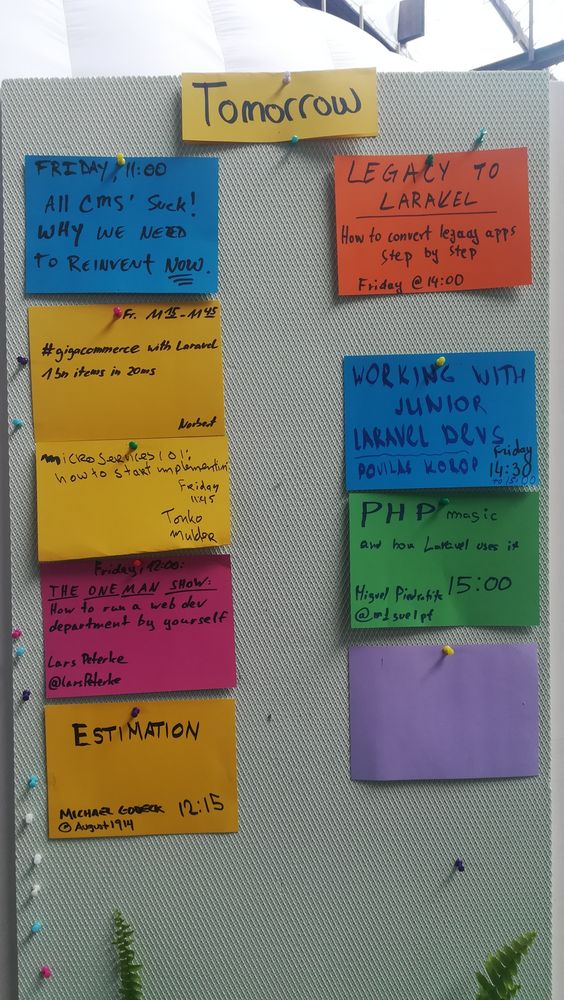 Tomorrow
FRIDAY, 11:00
All CMS' Suck!
WHY WE NEED
TO REINVENT NOW.
Fr. 11 15 - 11 45
#gigacommerce with Laravel
1 bn items in 20ms
Norbert
microservices 101:
how to start implementin
Friday
11:45
Tonko
Mulder
Friday, 12:00:
THE ONE MAN SHOW:
How to run a web dev
department by yourself
Lars Peterke
@larsPeterke
ESTIMATION
MICHAEL 12:15
@August1914
LEGACY TO
LARAVEL
How to convert legacy apps
step by step
Friday @ 14:00
WORKING WITH
JUNIOR
LARAVEL DEVS
POVILAS KOROP
Friday
14:30
to 15:00
PHP magic
and how Laravel uses it
Miguel Piedrafita 15:00
@m1guelpf